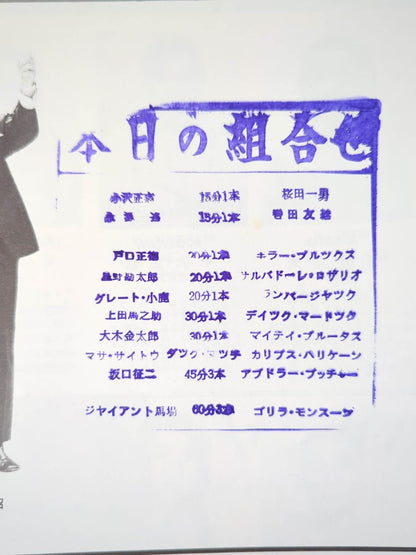 本日の組合せ
小沢正志 15分1本 桜田一男
15分1本 岩田友結
戸口正徳 20分1本 キラー・ブルックス
星野勘太郎 20分1本 サルバドーレ・ロザリオ
グレート・小鹿 20分1本 ランバージャック
上田馬之助 30分1本 デイック・マードック
大木金太郎 30分1本 マイティ・ブルータス
マサ・サイトウ タッグ・マッチ カリプス・ハリケーン
坂口征二 45分3本 アブドラー・ブッチャー
ジャイアント馬場 60分3本 ゴリラ・モンスーン